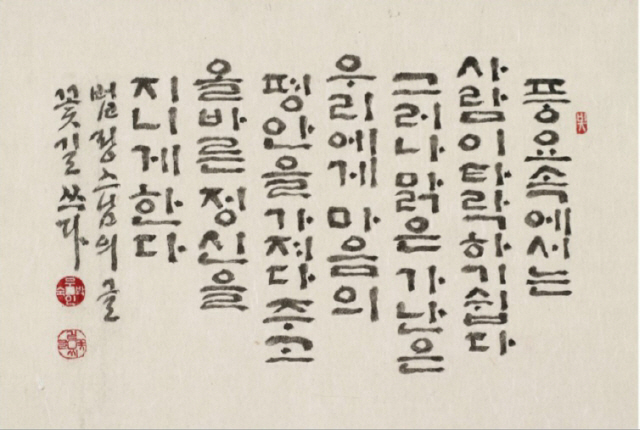 풍요속에서는
사람이타락하기쉽다
그러나 맑은 가난은
우리에게 마음의
평안을 가져다 주고
올바른 정신을
지니게한다
법정스님의 글
꽃길 쓰다